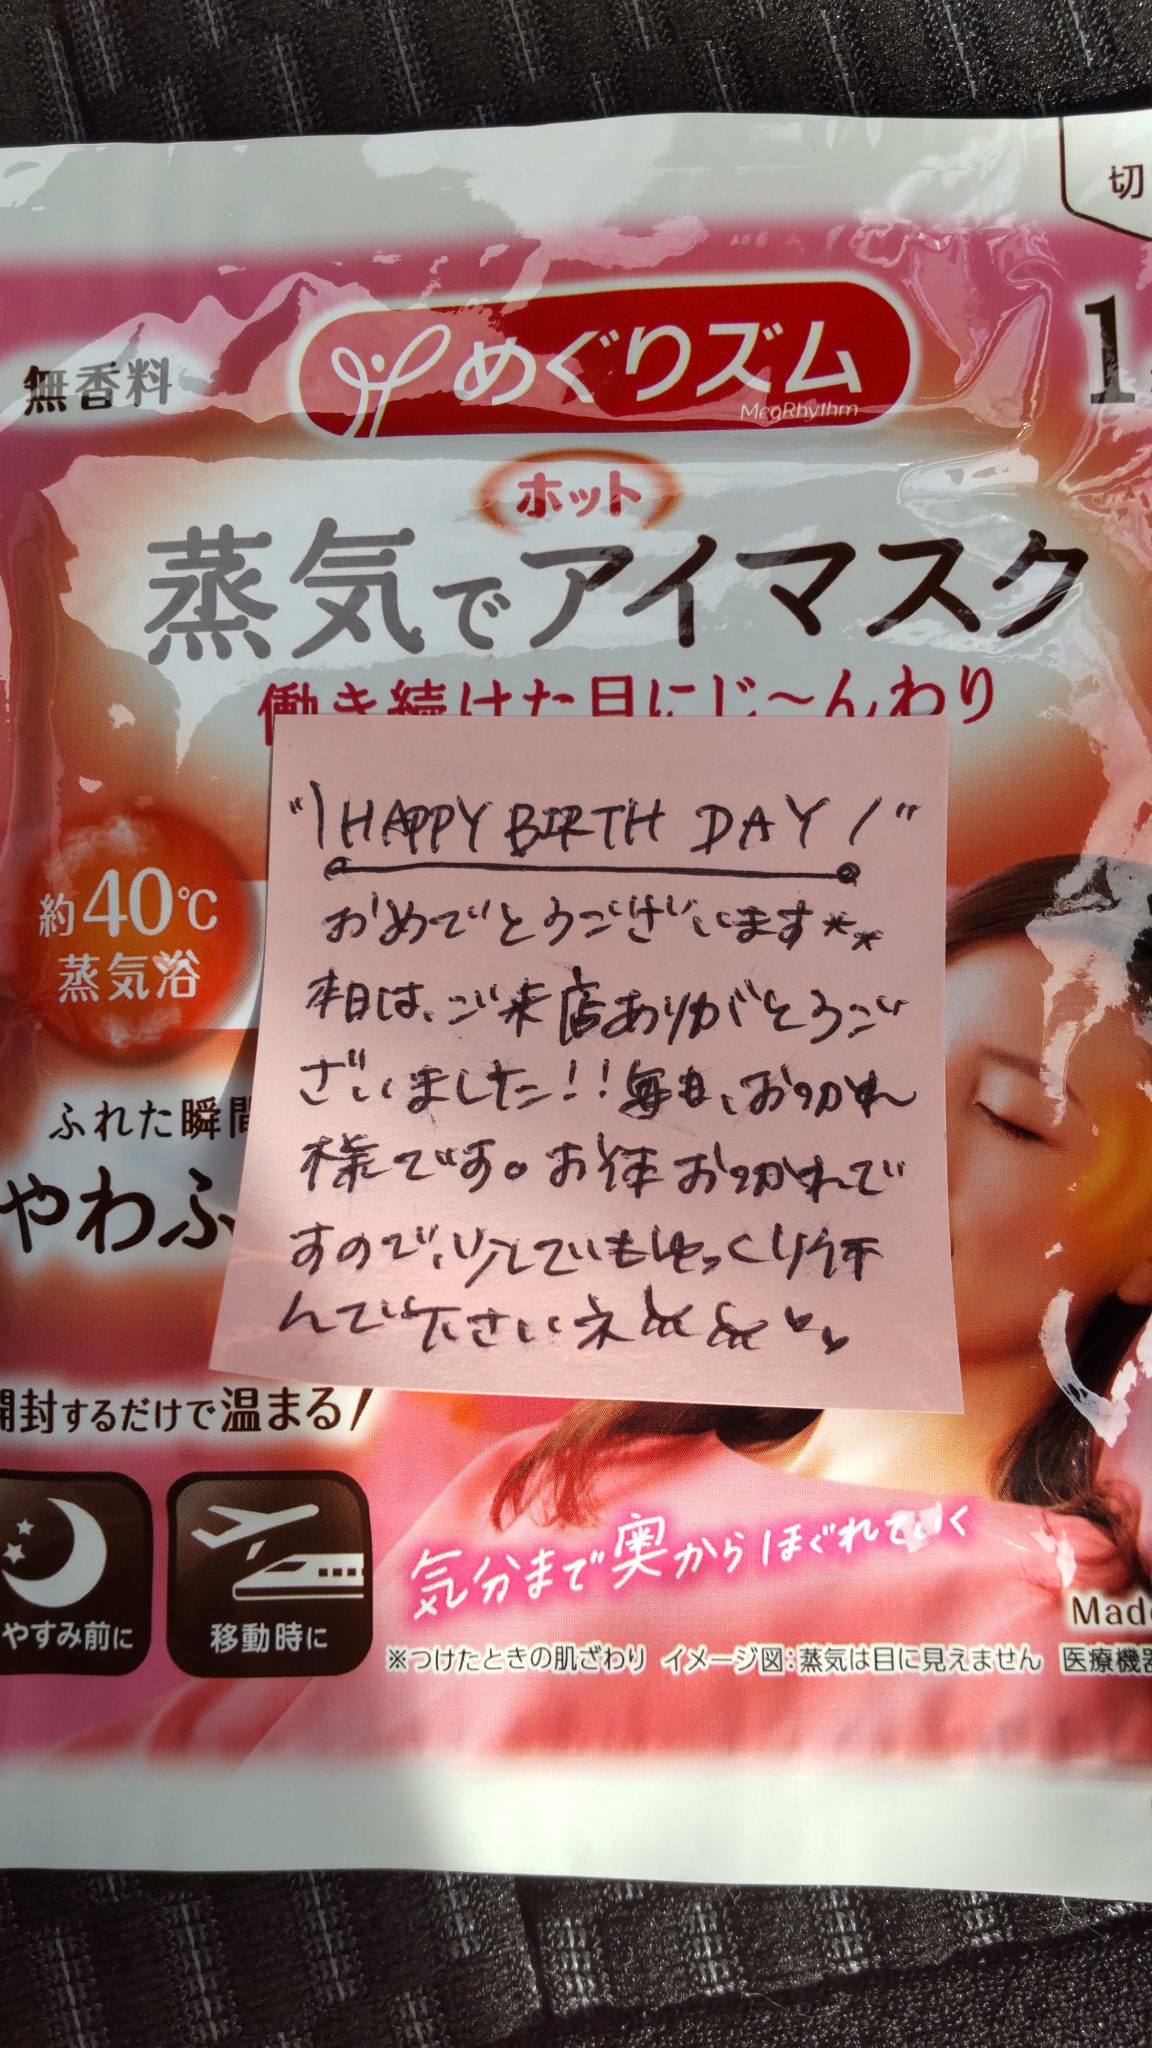 切
無香料
めぐりズム
MegRhythm
1
ホット
蒸気でアイマスク
働き続けた日にじ〜んわり
"\HAPPY BIRTH DAY/"
おめでとうございます**
本日は、ご来店ありがとうご
ざいました!!毎日、おつかれ
様です。お体おつかれで
すので、少しでいもゆっくり休
んで下さいネ
約40℃
蒸気浴
ふれた瞬間
やわふ
開封するだけで温まる!
やすみ前に
移動時に
気分まで奥からほぐれていく
Made
※つけたときの肌ざわり イメージ図:蒸気は目に見えません 医療機器